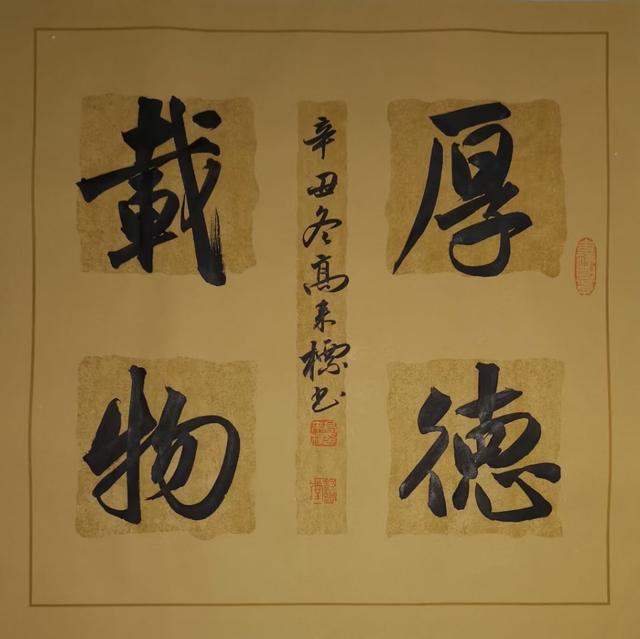 厚德
載物
辛丑冬高来標书